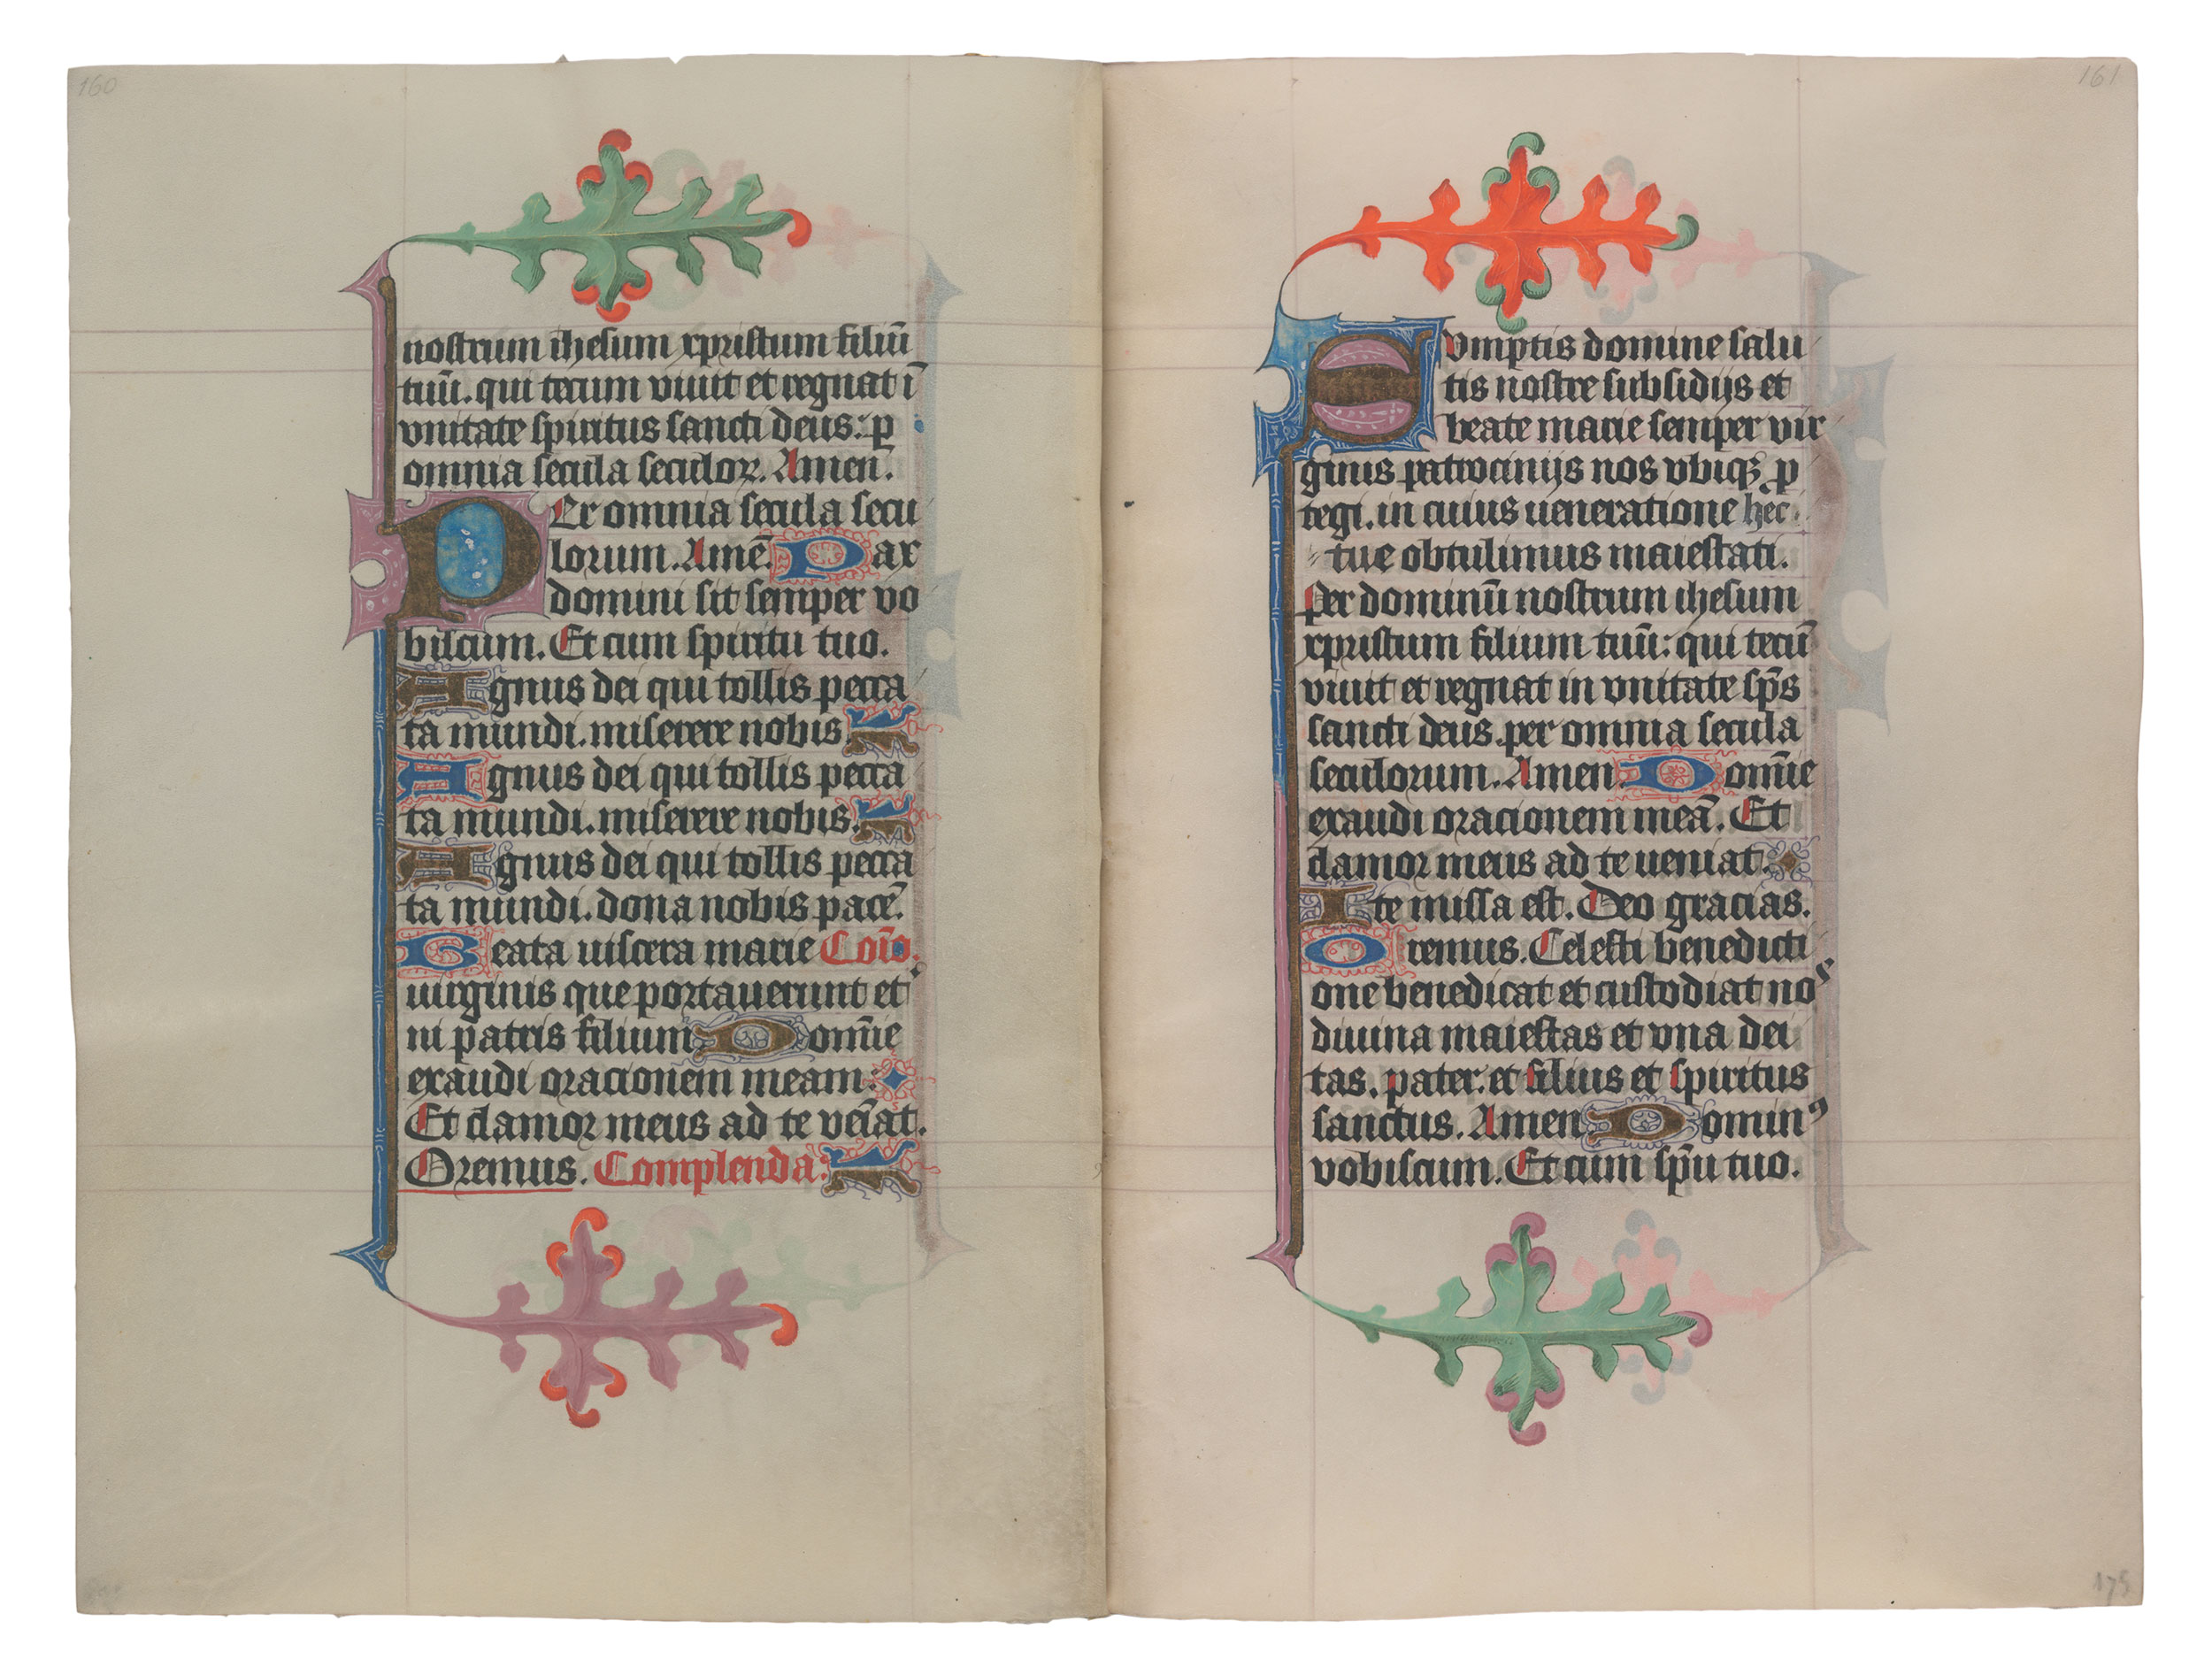 160
nostrum ihesum xpristum filiū
tuū. qui tecum viuit et regnat ī
vnitate spiritus sancti deus. ꝑ
omnia secula seculoꝝ. Amen.
Per omnia secula secu
lorum. Amē. Pax
domini sit semper vo
biscum. Et cum spiritu tuo.
Agnus dei qui tollis pecca
ta mundi. miserere nobis.
Agnus dei qui tollis pecca
ta mundi. miserere nobis.
Agnus dei qui tollis pecca
ta mundi. dona nobis pacē.
Beata uiscera marie Coīo.
uirginis que portauerunt et
ni patris filium Domīe
exaudi oracionem meam:
Et clamor meus ad te veīat.
Oremus. Complenda:
161
Sumptis domine salu
tis nostre subsidijs et
beate marie semper vir
ginis patrocinijs nos vbiqꝫ ꝓ
tegi. in cuius ueneratione hec
tue obtulimus maiestati.
Per dominū nostrum ihesum
xpristum filium tuū: qui tecū
viuit et regnat in vnitate sp̄s
sancti deus. per omnia secula
seculorum. Amen Domīe
exaudi oracionem meā. Et
clamor meus ad te ueniat.
Ite missa est. Deo gracias.
Oremus. Celesti benedicti
one benedicat et custodiat nos
diuina maiestas et vna dei
tas. pater. et filius et spiritus
sanctus. Amen Dominꝰ
vobiscum. Et cum sp̄u tuo.
175